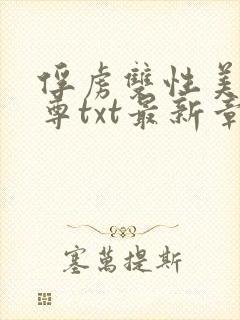 俘虏雙性美
尊txt最新章
塞萬提斯